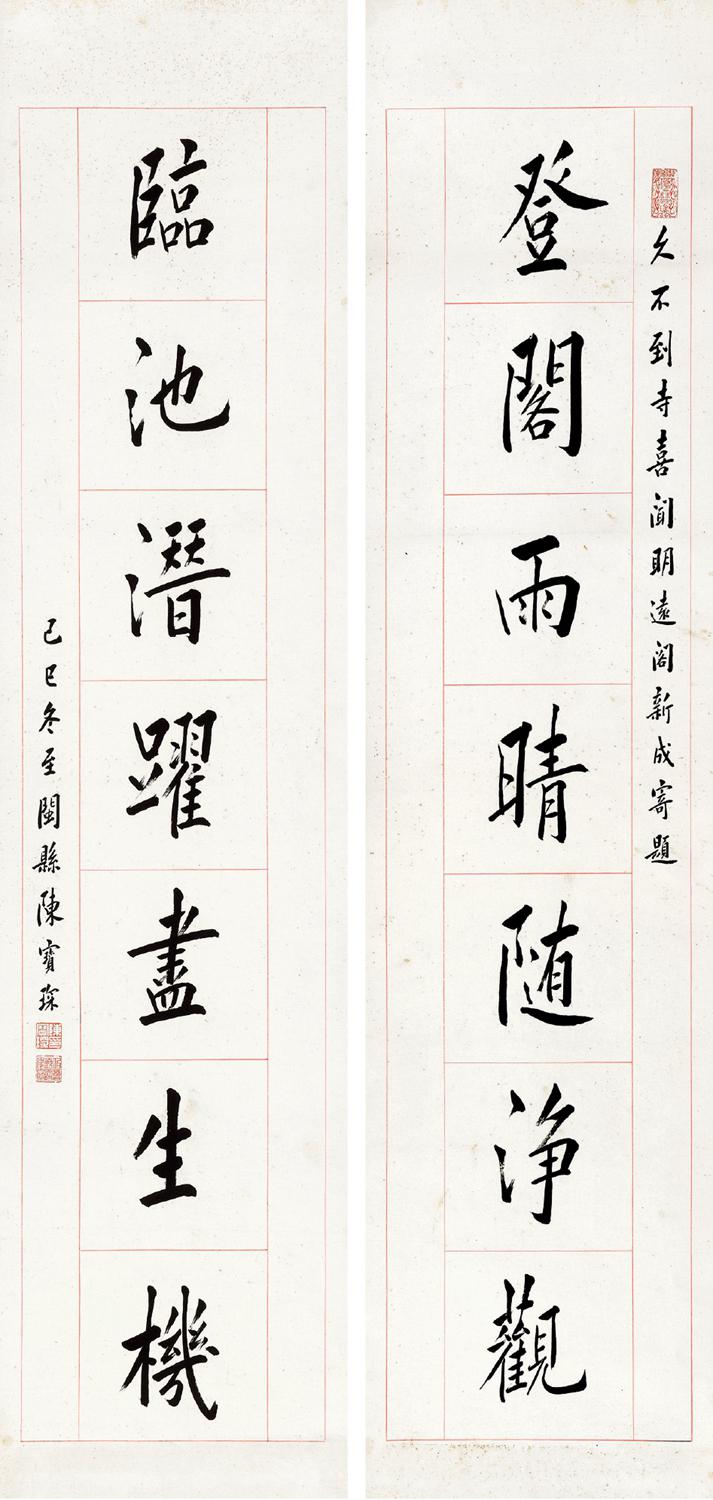 久不到寺喜闻明遠阁新成寄題
登閣雨晴随浄觀
臨池潛躍盡生機
己巳冬至閩縣陳寶琛